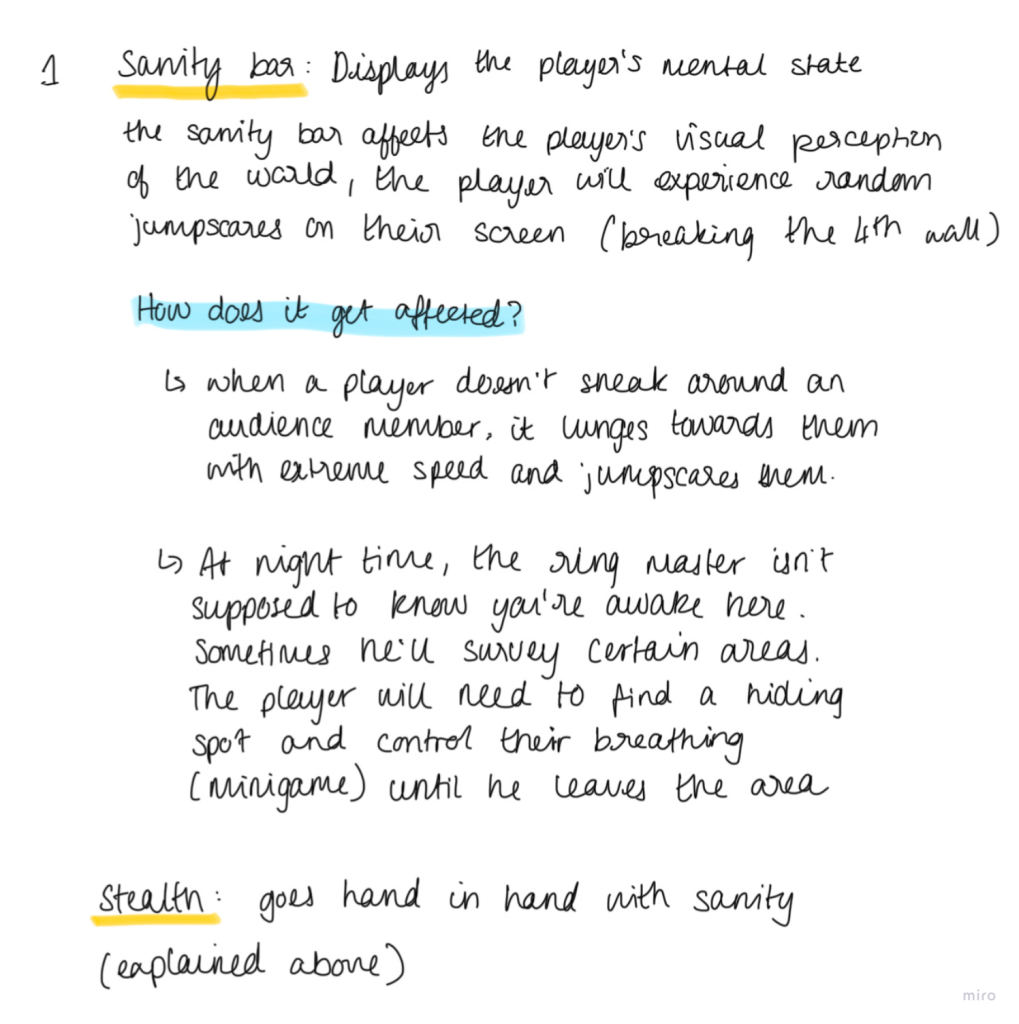 1 Sanity bar: Displays the player's mental state
the sanity bar affects the player's visual perception
of the world, the player will experience random
jumpscares on their screen (breaking the 4th wall)
How does it get affected?
↳ when a player doesn't sneak around an
audience member, it lunges towards them
with extreme speed and jumpscares them.
↳ At night time, the ring master isn't
supposed to know you're awake here.
Sometimes he'll survey certain areas.
The player will need to find a hiding
spot and control their breathing
(minigame) until he leaves the area
Stealth: goes hand in hand with sanity
(explained above)
miro